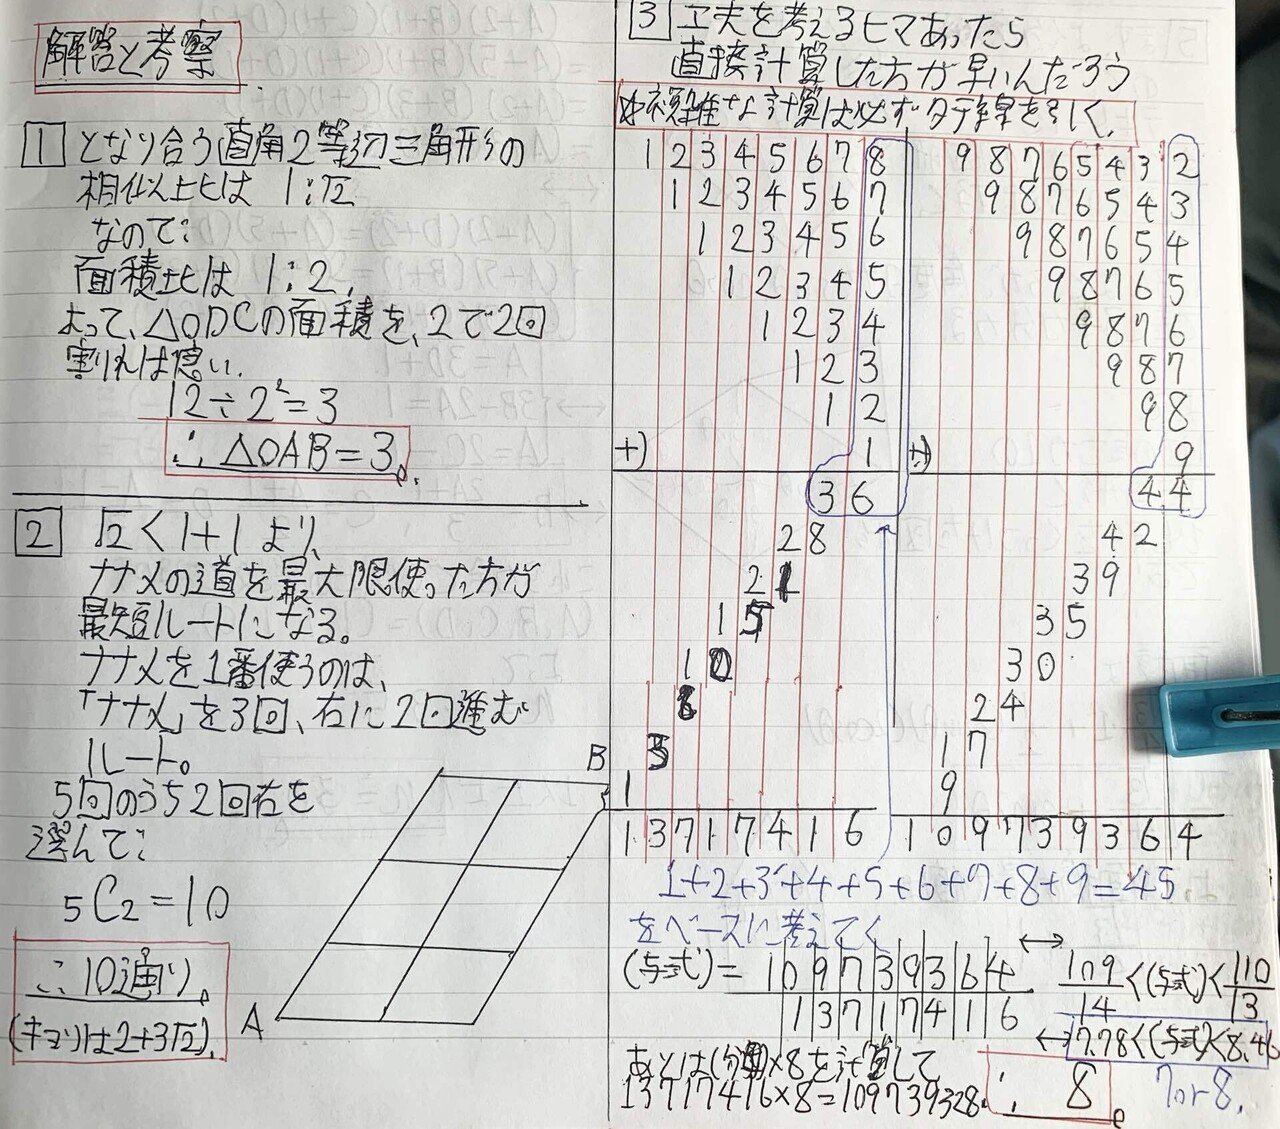 解答と考察
1 となり合う直角2等辺三角形の
相似比は 1:√2
なので
面積比は 1:2
よって、△ODCの面積を、2で2回
割れば良い。
12÷2²=3
∴ △OAB=3。
2 √2<1+1 より、
ナナメの道を最大限使った方が
最短ルートになる。
ナナメを1番使うのは、
「ナナメ」を3回、右に2回進む
ルート。
5回のうち2回右を
選んで
5C2=10
∴ 10通り。
(キョリは2+3√2)。
B
A
3 工夫を考えるヒマあったら
直接計算した方が早いんだろう
複雑な計算は必ずタテ線を引く。
12345678
1234567
123456
12345
1234
123
12
+) 1
36
28
21
15
10
3
1
13717416
98765432
9876543
987654
98765
9876
987
98
+) 9
44
42
39
35
30
24
17
9
109739364
1+2+3+4+5+6+7+8+9=45
をベースに考えてく
(与式)= 109739364
13717416
↔ 109/14<(与式)<110/13
↔ 7.78<(与式)<8.46
7or8.
あとは(分母)×8を計算して
13717416×8=109739328.
∴ 8。